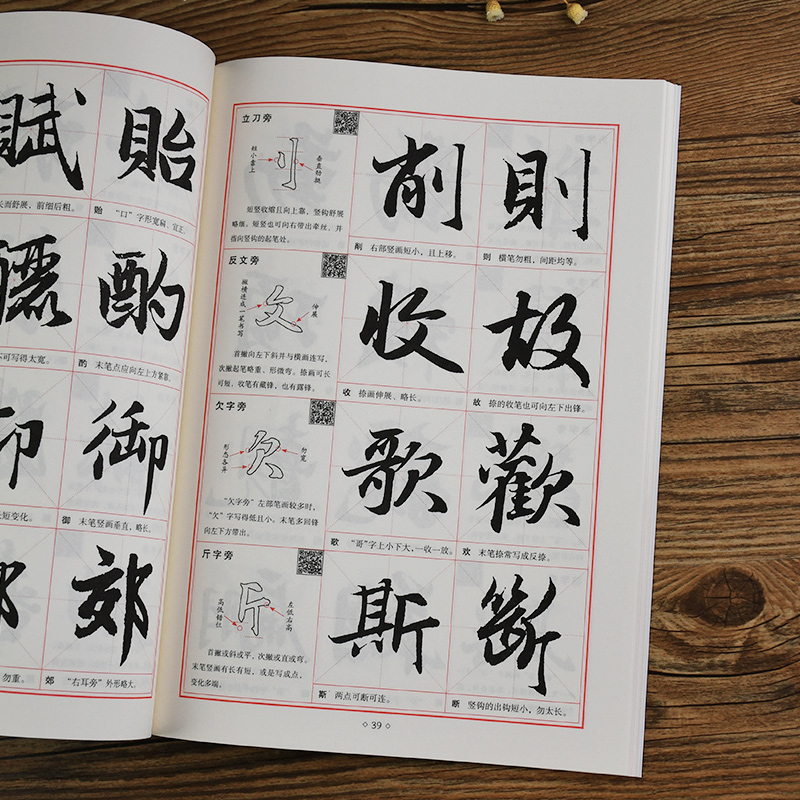 賦
貽
长而舒展，前细后粗。
贻 “口”字形宽扁、宜正。
酌
不可写得太宽。
酌 末笔点应向左上方紧靠。
御
长短变化。
御 末笔竖画垂直，略长。
郊
勿重。
郊 “右耳旁”外形略大。
立刀旁
短小靠上
垂直劲挺
短竖收缩且向上靠，竖钩舒展
略细。短竖也可向右带出牵丝，并
指向竖钩的起笔处。
削
則
削 右部竖画短小，且上移。
则 横笔勿粗，间距均等。
反文旁
撇横连成一笔书写
伸展
首撇向左下斜并与横画连写，
次撇起笔略重、形微弯。捺画可长
可短，收笔有藏锋，也有露锋。
收
故
收 捺画伸展、略长。
故 捺的收笔也可向左下出锋。
欠字旁
形态各异
勿宽
“欠字旁”左部笔画较多时，
“欠”字写得低且小。末笔多回锋
向左下方带出。
歌
歡
歌 “哥”字上小下大，一收一放。
欢 末笔捺常写成反捺。
斤字旁
高低错位
左低右高
首撇或斜或平，次撇或直或弯。
末笔竖画有长有短，或是写成点，
变化多端。
斯
斷
斯 两点可断可连。
断 竖钩的出钩短小，勿太长。
39